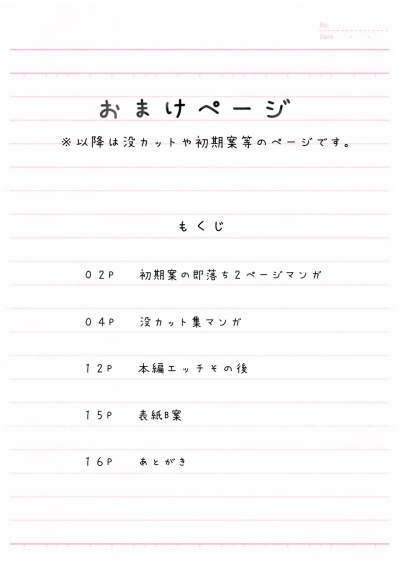 No.
Date
おまけページ
※以降は没カットや初期案等のページです。
もくじ
02P 初期案の即落ち2ページマンガ
04P 没カット集マンガ
12P 本編エッチその後
15P 表紙B案
16P あとがき